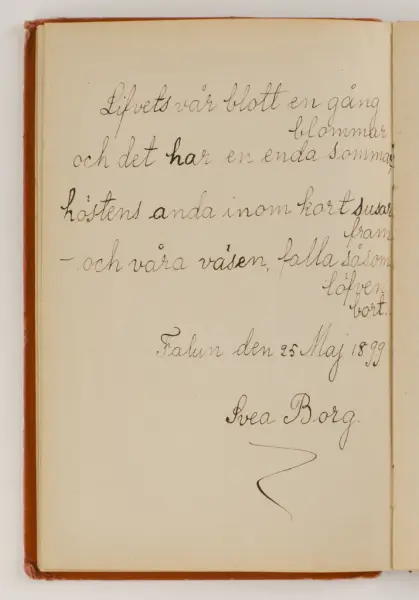 Lifvets vår blott en gång
blommar
och det har en enda sommar,
höstens anda inom kort susar
fram
– och våra väsen, falla såsom
löfven
bort.
Falun den 25 Maj 1899
Svea Borg.